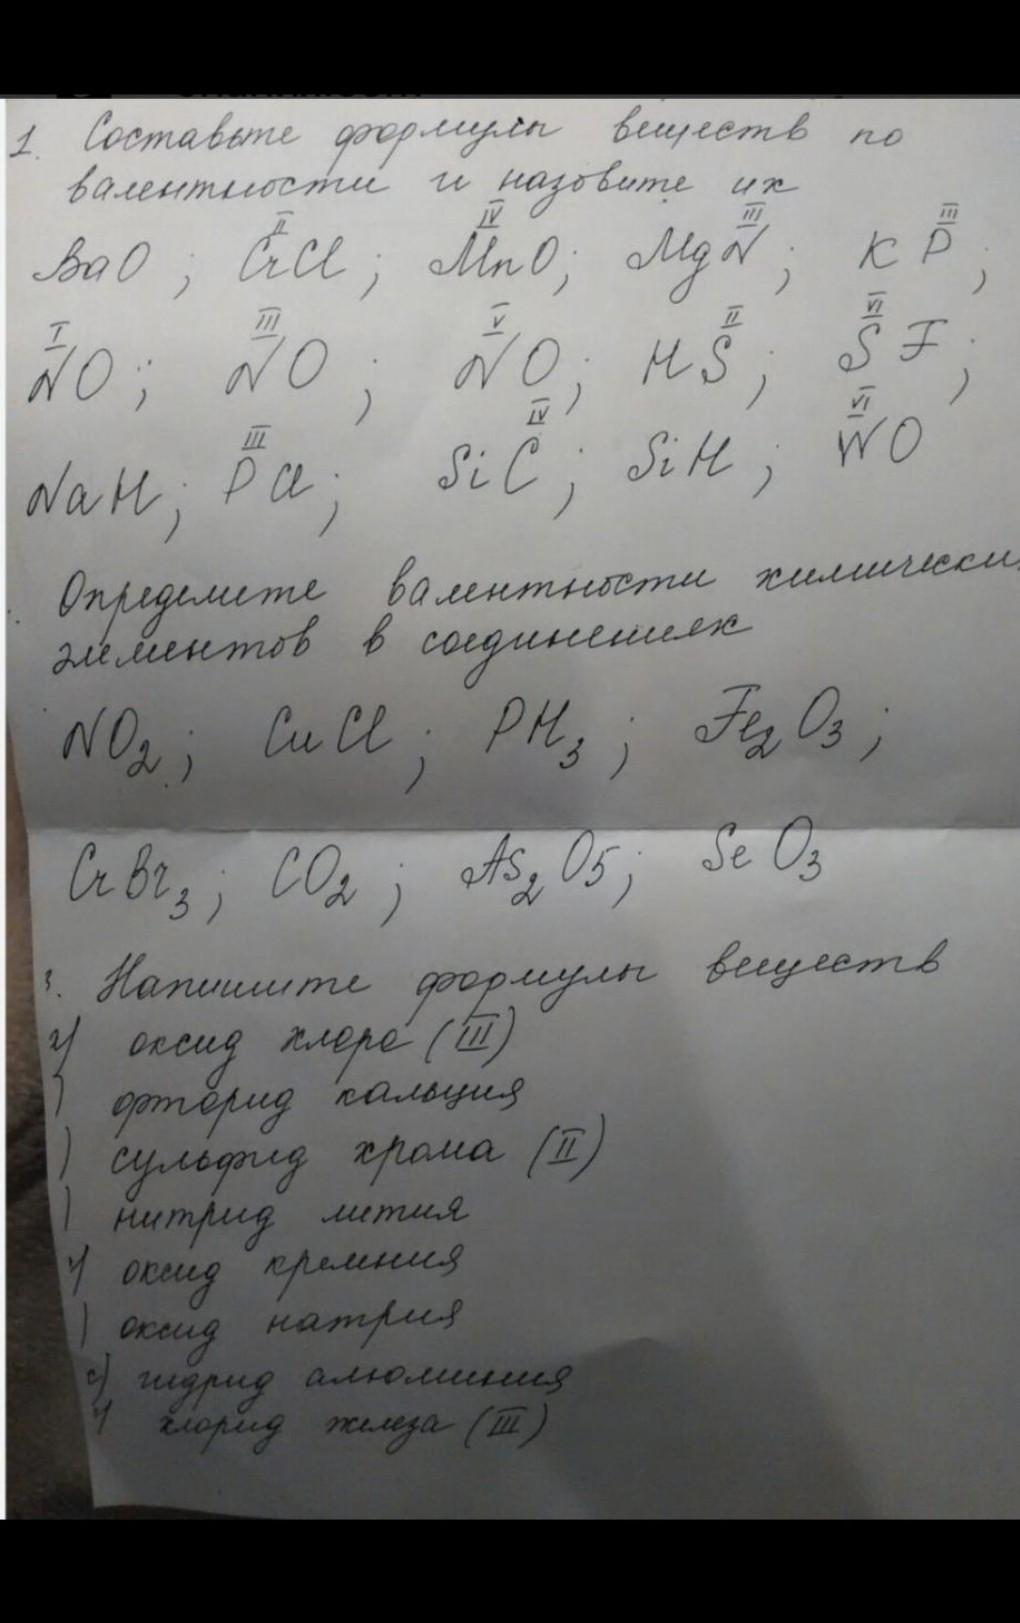 1. Составьте формулы веществ по
валентности и назовите их
II IV III III
BaO ; CrCl ; MnO; MgN ; K P ;
I III V II VI
NO ; NO ; NO ; HS ; SF ;
III IV VI
NaH ; PCl ; SiC ; SiH ; WO
Определите валентности химически
элементов в соединениях
NO2 ; CuCl ; PH3 ; Fe2O3 ;
CrBr3 ; CO2 ; As2O5 ; SeO3
3. Напишите формулы веществ
) оксид хлора (III)
) фторид кальция
) сульфид хрома (II)
) нитрид лития
) оксид кремния
) оксид натрия
) гидрид алюминия
хлорид железа (III)